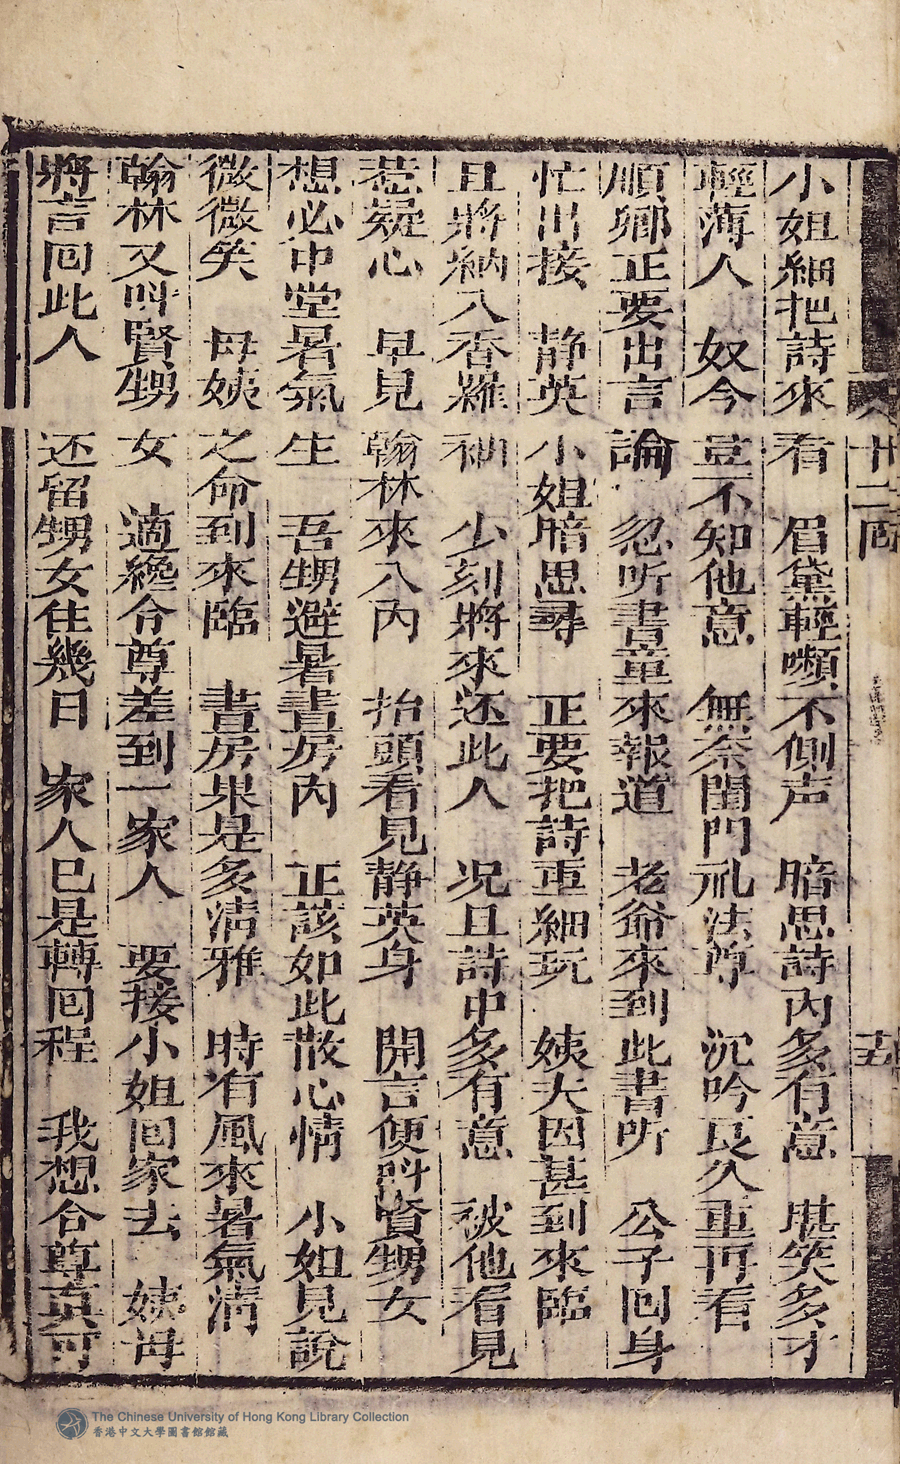 廿二囬 十五
小姐細把詩來看 眉黛輕嚬不側声 暗思詩內多有意 堪笑多才
輕薄人 奴今豈不知他意 無奈閨門礼法尊 沉吟良久重再看
順鄉正要出言論 忽听書童來報道 老爺來到此書听 公子回身
忙出接 静英小姐暗思尋 正要把詩重細玩 姨夫因甚到來臨
且將納入香羅袖 少刻將來还此人 况且詩中多有意 被他看見
惹疑心 早見翰林來入內 抬頭看見静英身 開言便呌賢甥女
想必中堂暑氣生 吾甥避暑書房內 正該如此散心情 小姐見說
微微笑 母姨之命到來臨 書房果是多清雅 時有風來暑氣清
翰林又呌賢甥女 適纔令尊差到一家人 要接小姐囬家去 姨母
將言囬此人 还留甥女住幾日 家人已是轉囬程 我想令尊真可
The Chinese University of Hong Kong Library Collection
香港中文大學圖書館館藏